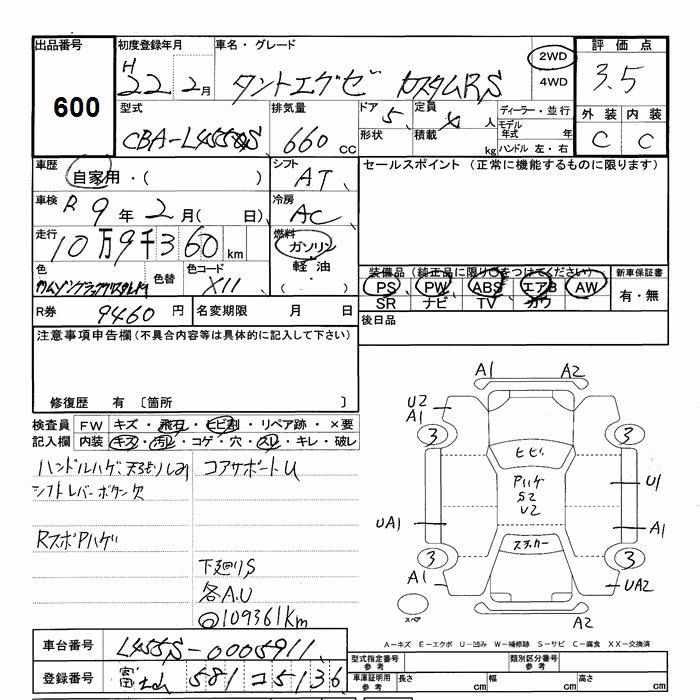 出品番号 初度登録年月 車名・グレード 2WD 評価点
600 H 22年2月 タントエグゼ カスタムRS 4WD 3.5
型式 排気量 ドア 5 定員 4人 ディーラー・並行 外装 内装
CBA-L455S 660 cc 形状 積載 kg モデル年式 年 C C
ハンドル 左・右
車歴 自家用・( ) シフト AT セールスポイント (正常に機能するものに限ります)
車検 R 9年2月( 日) 冷房 AC
走行 10万9千360km 燃料 ガソリン・軽油・( )
色 色替 色コード X11
装備品 (純正品に限り○をつけてください) 新車保証書
PS PW ABS エアB AW 有・無
SR ナビ TV カワ
R券 9460円 名変期限 月 日 後日品
注意事項申告欄(不具合内容等は具体的に記入して下さい)
修復歴 有 〔箇所 〕
検査員記入欄 FW キズ・飛石・ヒビ割・リペア跡・×要
内装 キズ・汚レ・コゲ・穴・スレ・キレ・破レ
ハンドルハゲ、天張りしみ コアサポートU
シフトレバーボタン欠
RスポPハゲ
下廻りS
各A.U
◎109361Km
A1 A2
U2
A1
3 3
ヒビ
Pハゲ
S2
U2
U1
UA1 A1
ステッカー
3 3
A1 UA2
スペア A2
A-キズ E-エクボ U-凹み W-補修跡 S-サビ C-腐食 XX-交換済
車台番号 L455S-0005911
型式指定番号 参考 類別区分番号 参考
登録番号 富士山 581 こ 5136
車庫証明用 参考 長さ cm 幅 cm 高さ cm